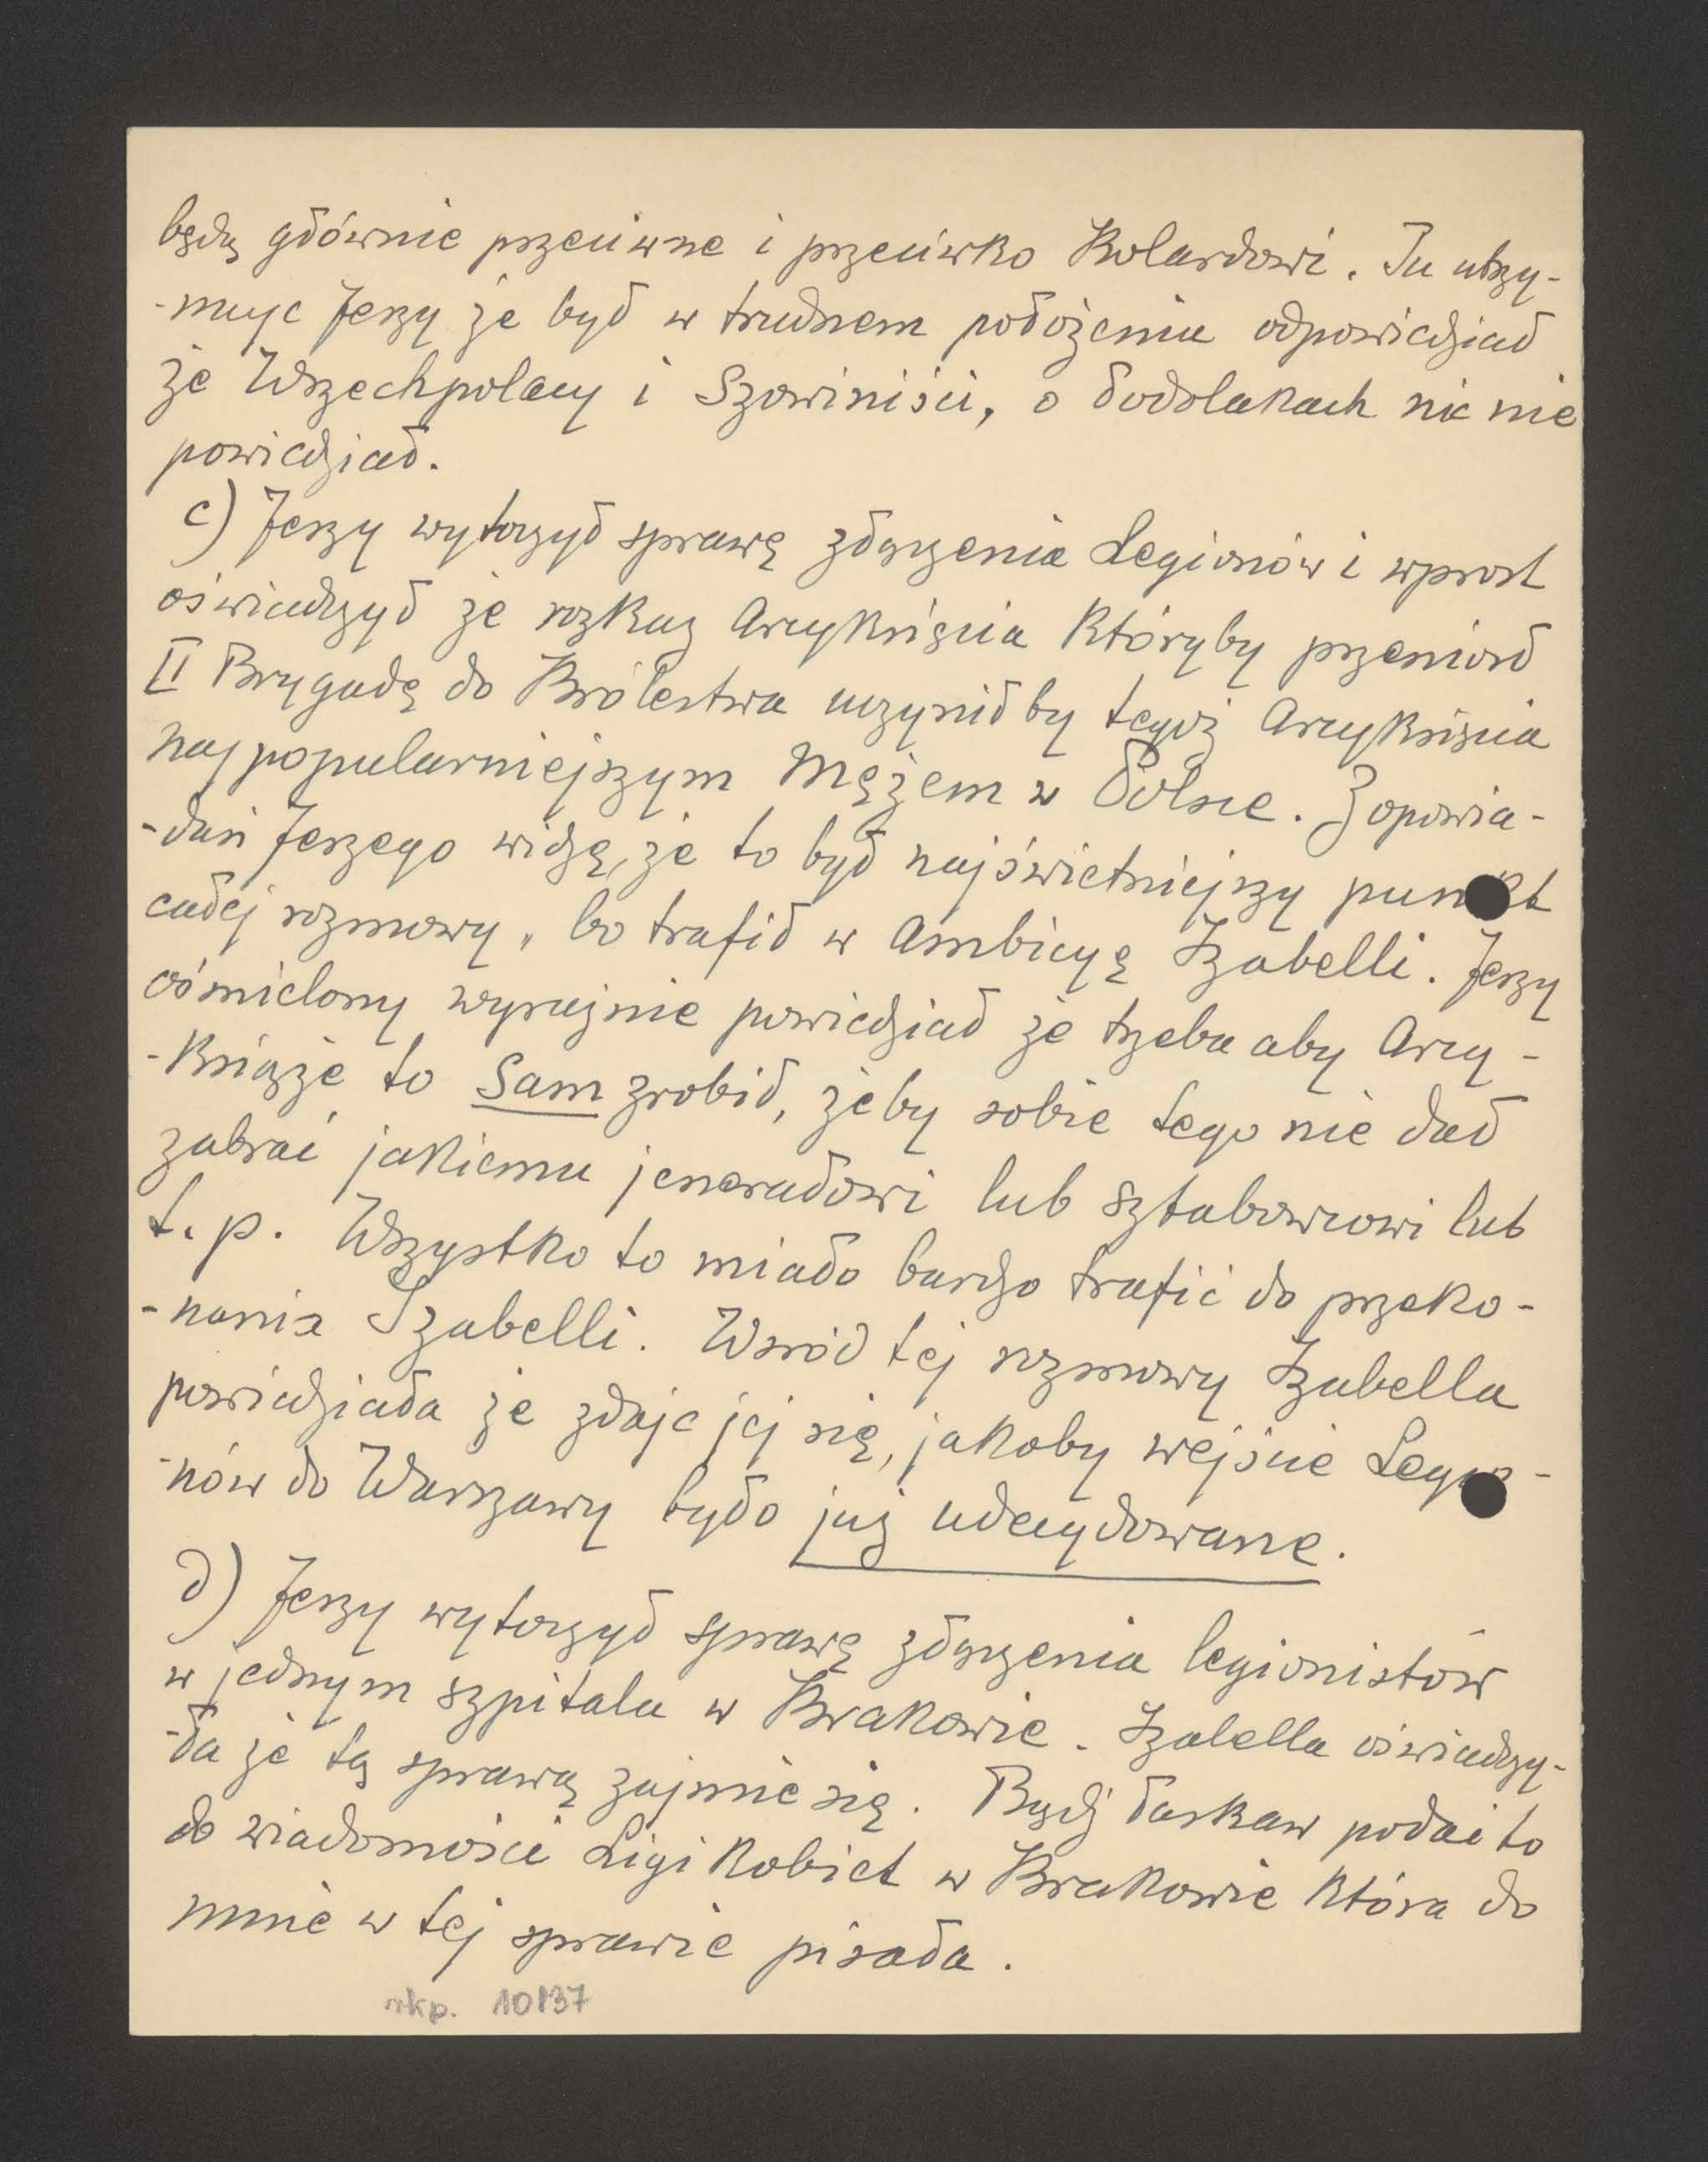 będą głównie przeciwne i przeciwko Kolardowi. Tu utrzy-
-muje Jerzy że był w trudnem położeniu odpowiedział
że Wszechpolacy i Szowiniści, o Podolakach nic nie
powiedział.
c) Jerzy wytoczył sprawę złączenia Legionów i wprost
oświadczył że rozkaz Arcyksięcia któryby przeniósł
II Brygadę do Królestwa uczyniłby tegoż Arcyksięcia
najpopularniejszym Mężem w Polsce. Z opowia-
-dań Jerzego widzę, że to był najświetniejszy punkt
całej rozmowy, bo trafił w Ambicyę Izabelli. Jerzy
ośmielony wyraźnie powiedział że trzeba aby Arcy-
-Książe to Sam zrobił, żeby sobie tego nie dał
zabrać jakiemu jenerałowi lub sztabowcowi lub
t. p. Wszystko to miało bardzo trafić do przeko-
-nania Izabelli. Wśród tej rozmowy Izabella
powiedziała że zdaje jej się, jakoby wejście Legio-
-nów do Warszawy było już udecydowane.
d) Jerzy wytoczył sprawę złączenia legionistów
w jednym szpitalu w Krakowie. Izabella oświadczy-
-ła że tą sprawą zajmie się. Bądź łaskaw podać to
do wiadomości Ligi Kobiet w Krakowie która do
mnie w tej sprawie pisała.
rkp. 10137